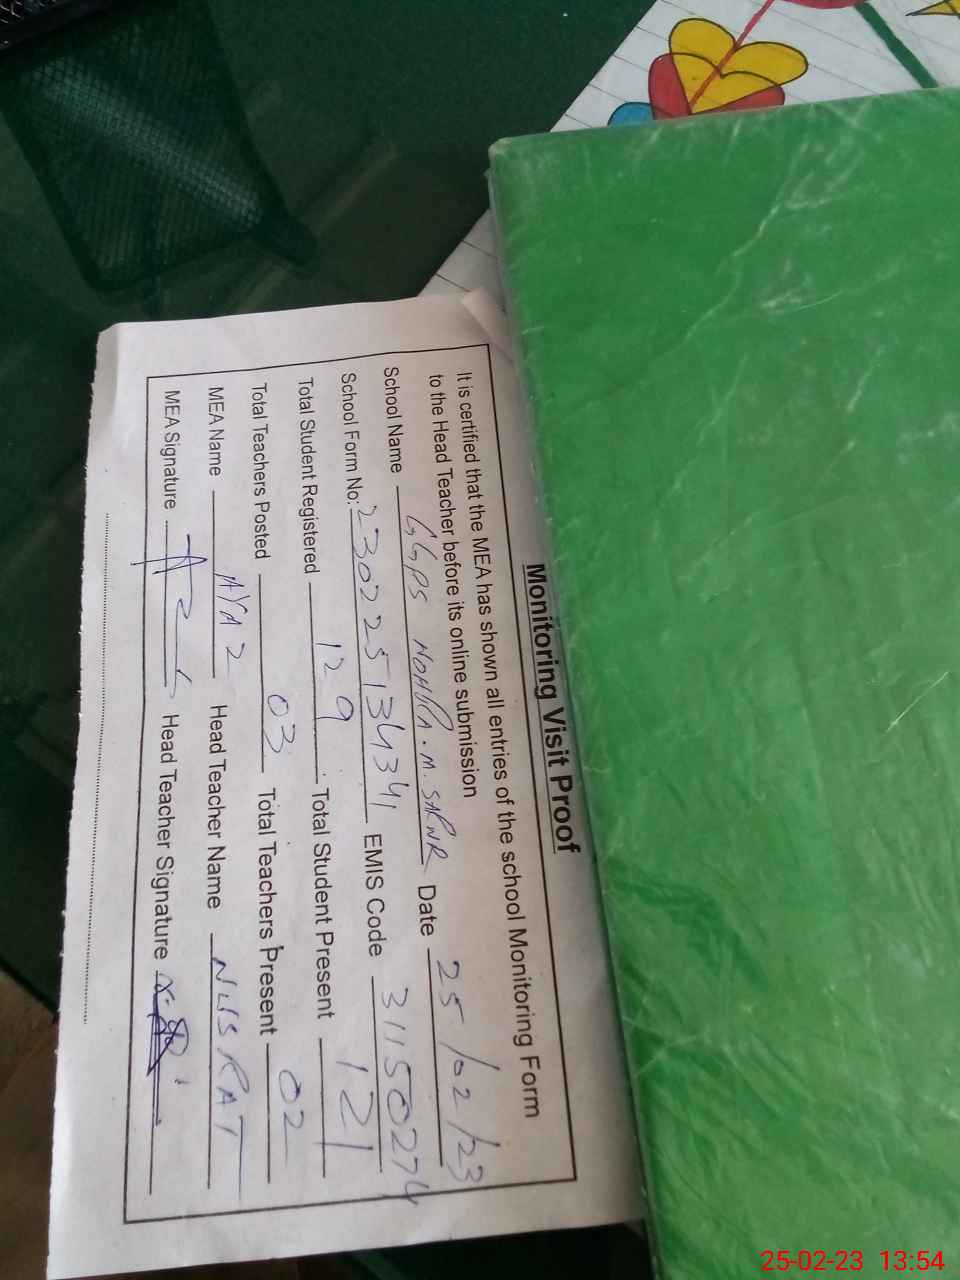 Monitoring Visit Proof
It is certified that the MEA has shown all entries of the school Monitoring Form
to the Head Teacher before its online submission
School Name GGPS NOHRA.M.SARWR Date 25/02/23
School Form No: 230225134341 EMIS Code 31150274
Total Student Registered 129 Total Student Present 121
Total Teachers Posted 03 Total Teachers Present 02
MEA Name AYAZ Head Teacher Name NUSRAT
MEA Signature Head Teacher Signature
25-02-23 13:54